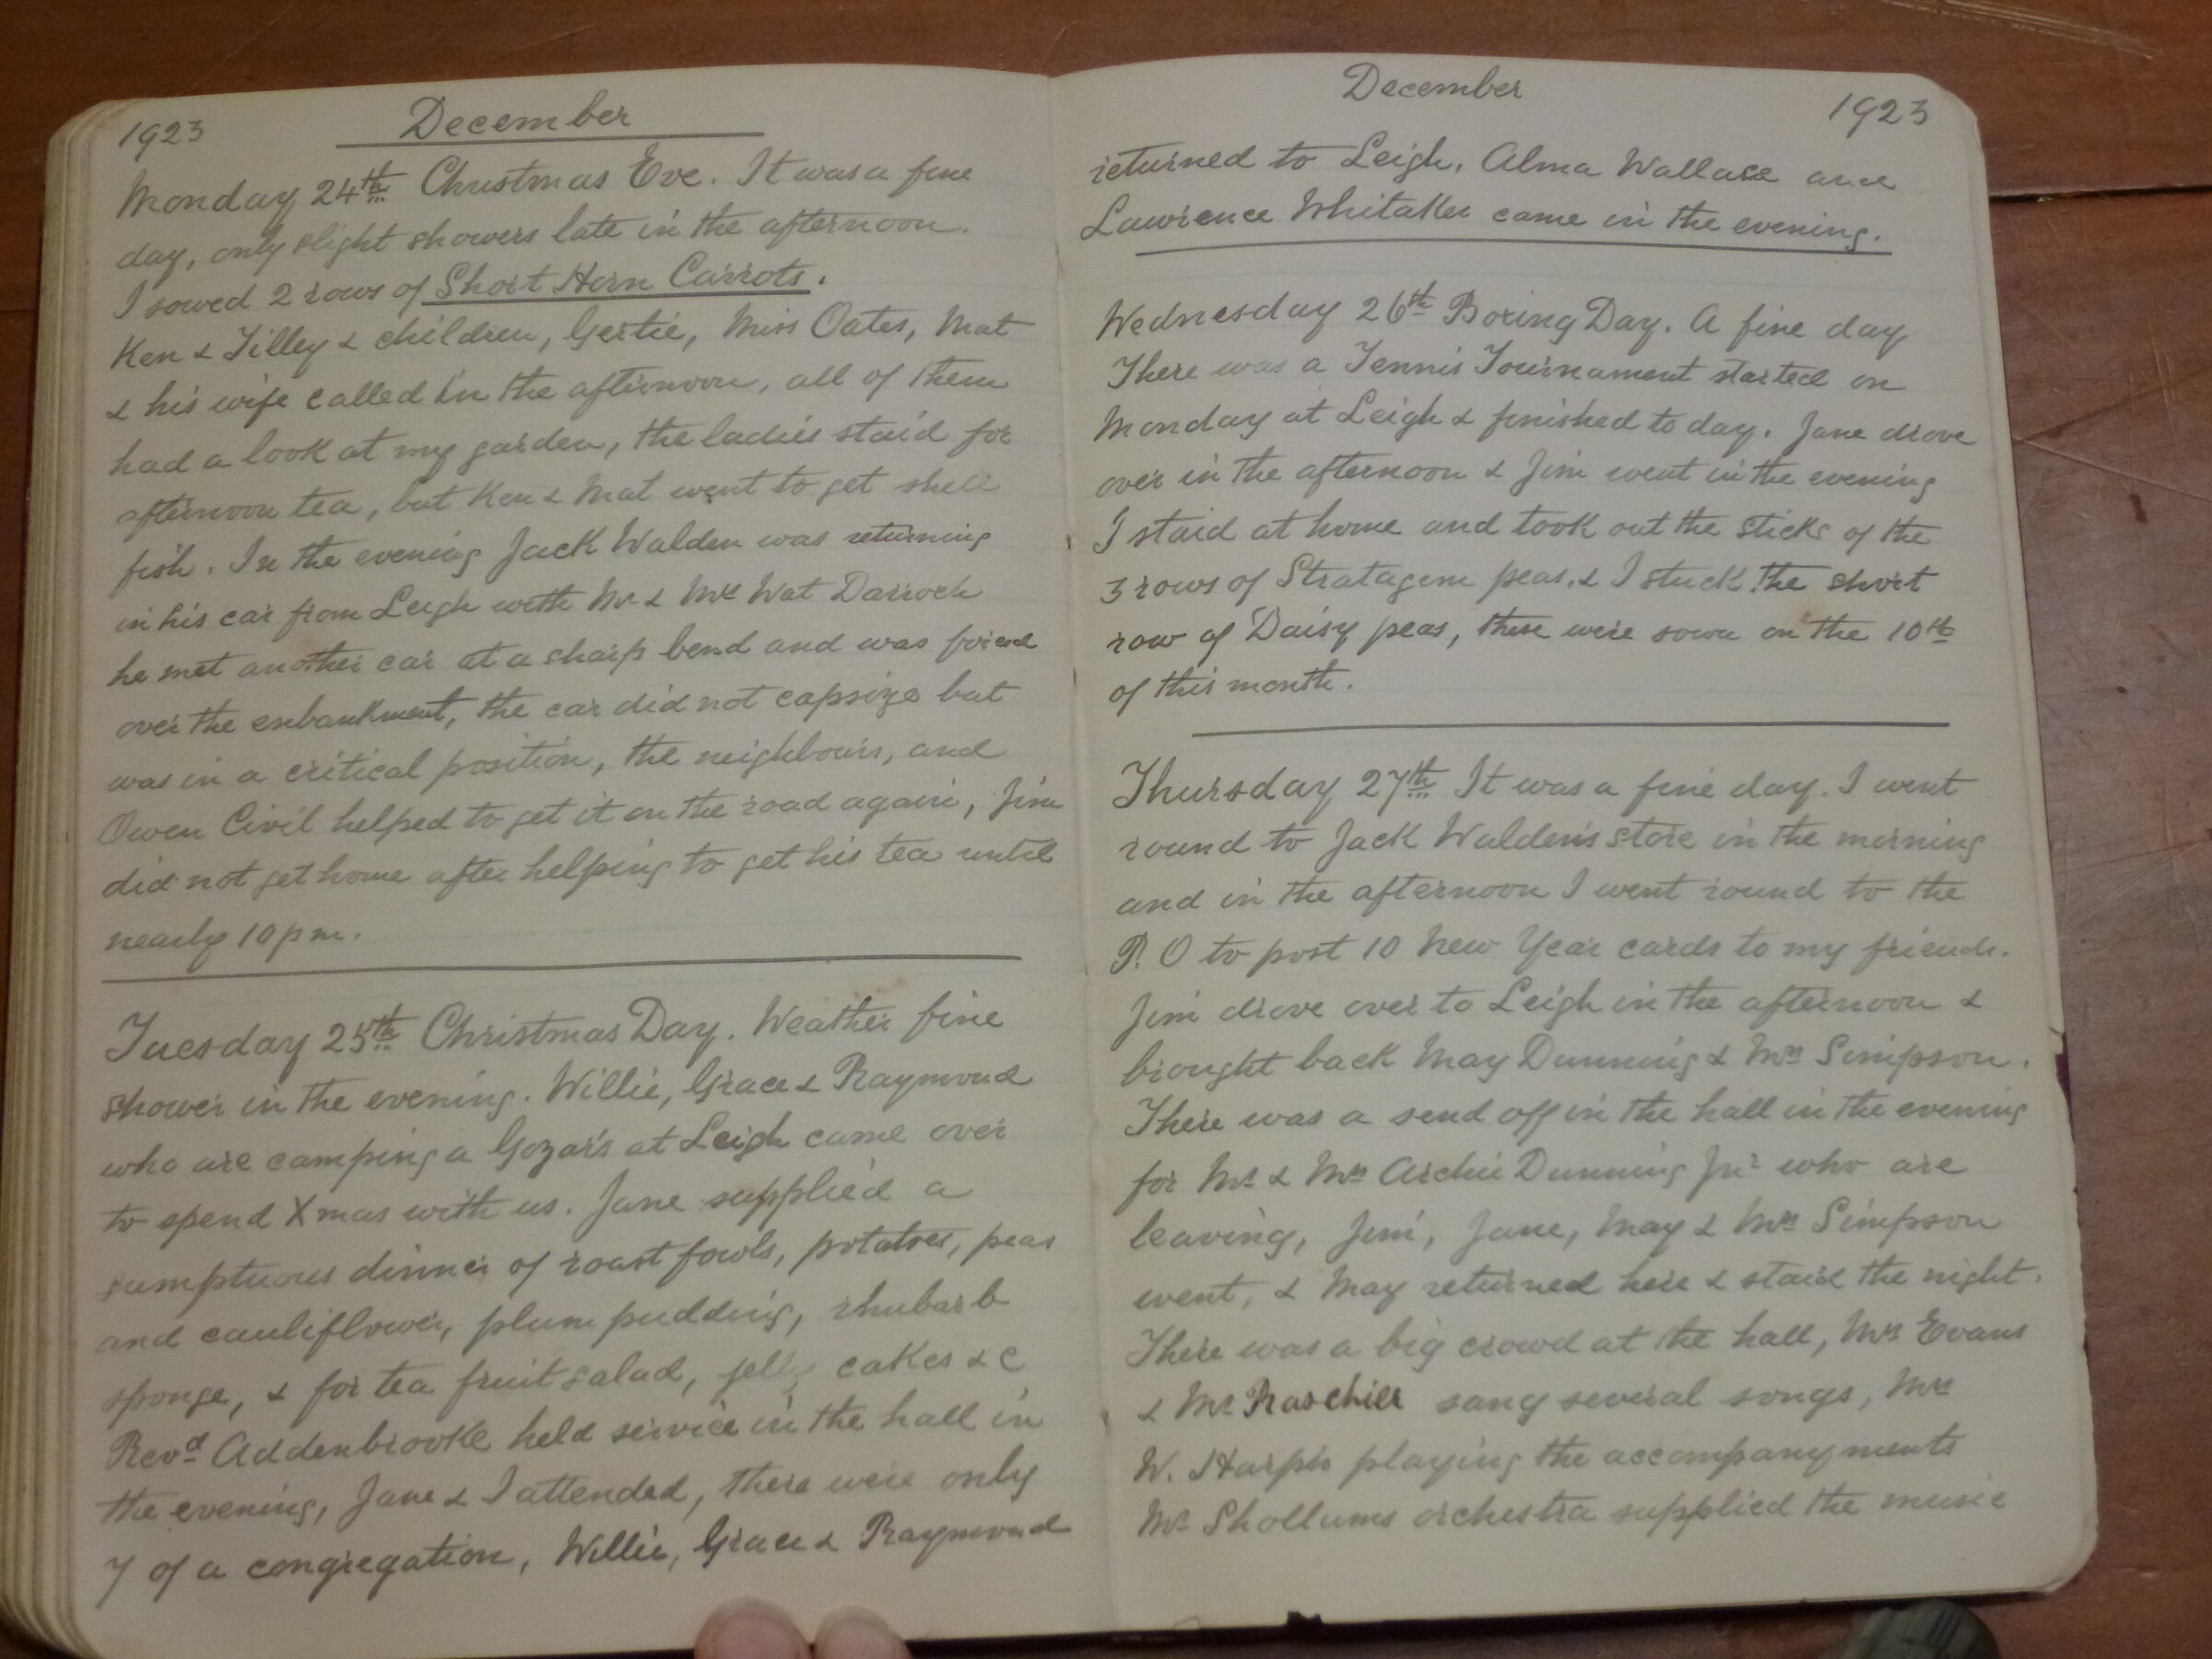 1923 December
Monday 24th Christmas Eve. It was a fine
day, only slight showers late in the afternoon.
I sowed 2 rows of Short Horn Carrots.
Ken & Tilley & children, Gertie, Miss Oates, Mat
& his wife called in the afternoon, all of them
had a look at my garden, the ladies staid for
afternoon tea, but Ken & Mat went to get shell
fish. In the evening Jack Walden was returning
in his car from Leigh with Mr & Mrs Wat Darroch
he met another car at a sharp bend and was forced
over the enbankment, the car did not capsize but
was in a critical position, the neighbours, and
Owen Civil helped to get it on the road again, Jim
did not get home after helping to get his tea until
nearly 10 pm.
Tuesday 25th Christmas Day. Weather fine
shower in the evening. Willie, Grace & Raymond
who are camping a Gozar's at Leigh came over
to spend Xmas with us. Jane supplied a
sumptuous dinner of roast fowls, potatoes, peas
and cauliflower, plum pudding, rhubarb
sponge, & for tea fruit salad, jelly cakes &c
Revd Addenbrooke held service in the hall in
the evening, Jane & I attended, there were only
7 of a congregation, Willie, Grace & Raymond
December 1923
returned to Leigh. Alma Wallace and
Lawrence Whitaker came in the evening.
Wednesday 26th Boxing Day. A fine day
There was a Tennis Tournament started on
Monday at Leigh & finished to day. Jane drove
over in the afternoon & Jim went in the evening
I staid at home and took out the sticks of the
3 rows of Stratagem peas, & I stuck the short
row of Daisy peas, these were sown on the 10th
of this month.
Thursday 27th It was a fine day. I went
round to Jack Walden's store in the morning
and in the afternoon I went round to the
P.O to post 10 New Year cards to my friends.
Jim drove over to Leigh in the afternoon &
brought back May Dunning & Mrs Simpson.
There was a send off in the hall in the evening
for Mr & Mrs Archie Dunning Jnr who are
leaving, Jim, Jane, May & Mrs Simpson
went, & May returned here & staid the night.
There was a big crowd at the hall, Mrs Evans
& Mr Raschill sang several songs, Mrs
W. Sharp's playing the accompanyments
Mr Shollums orchestra supplied the music